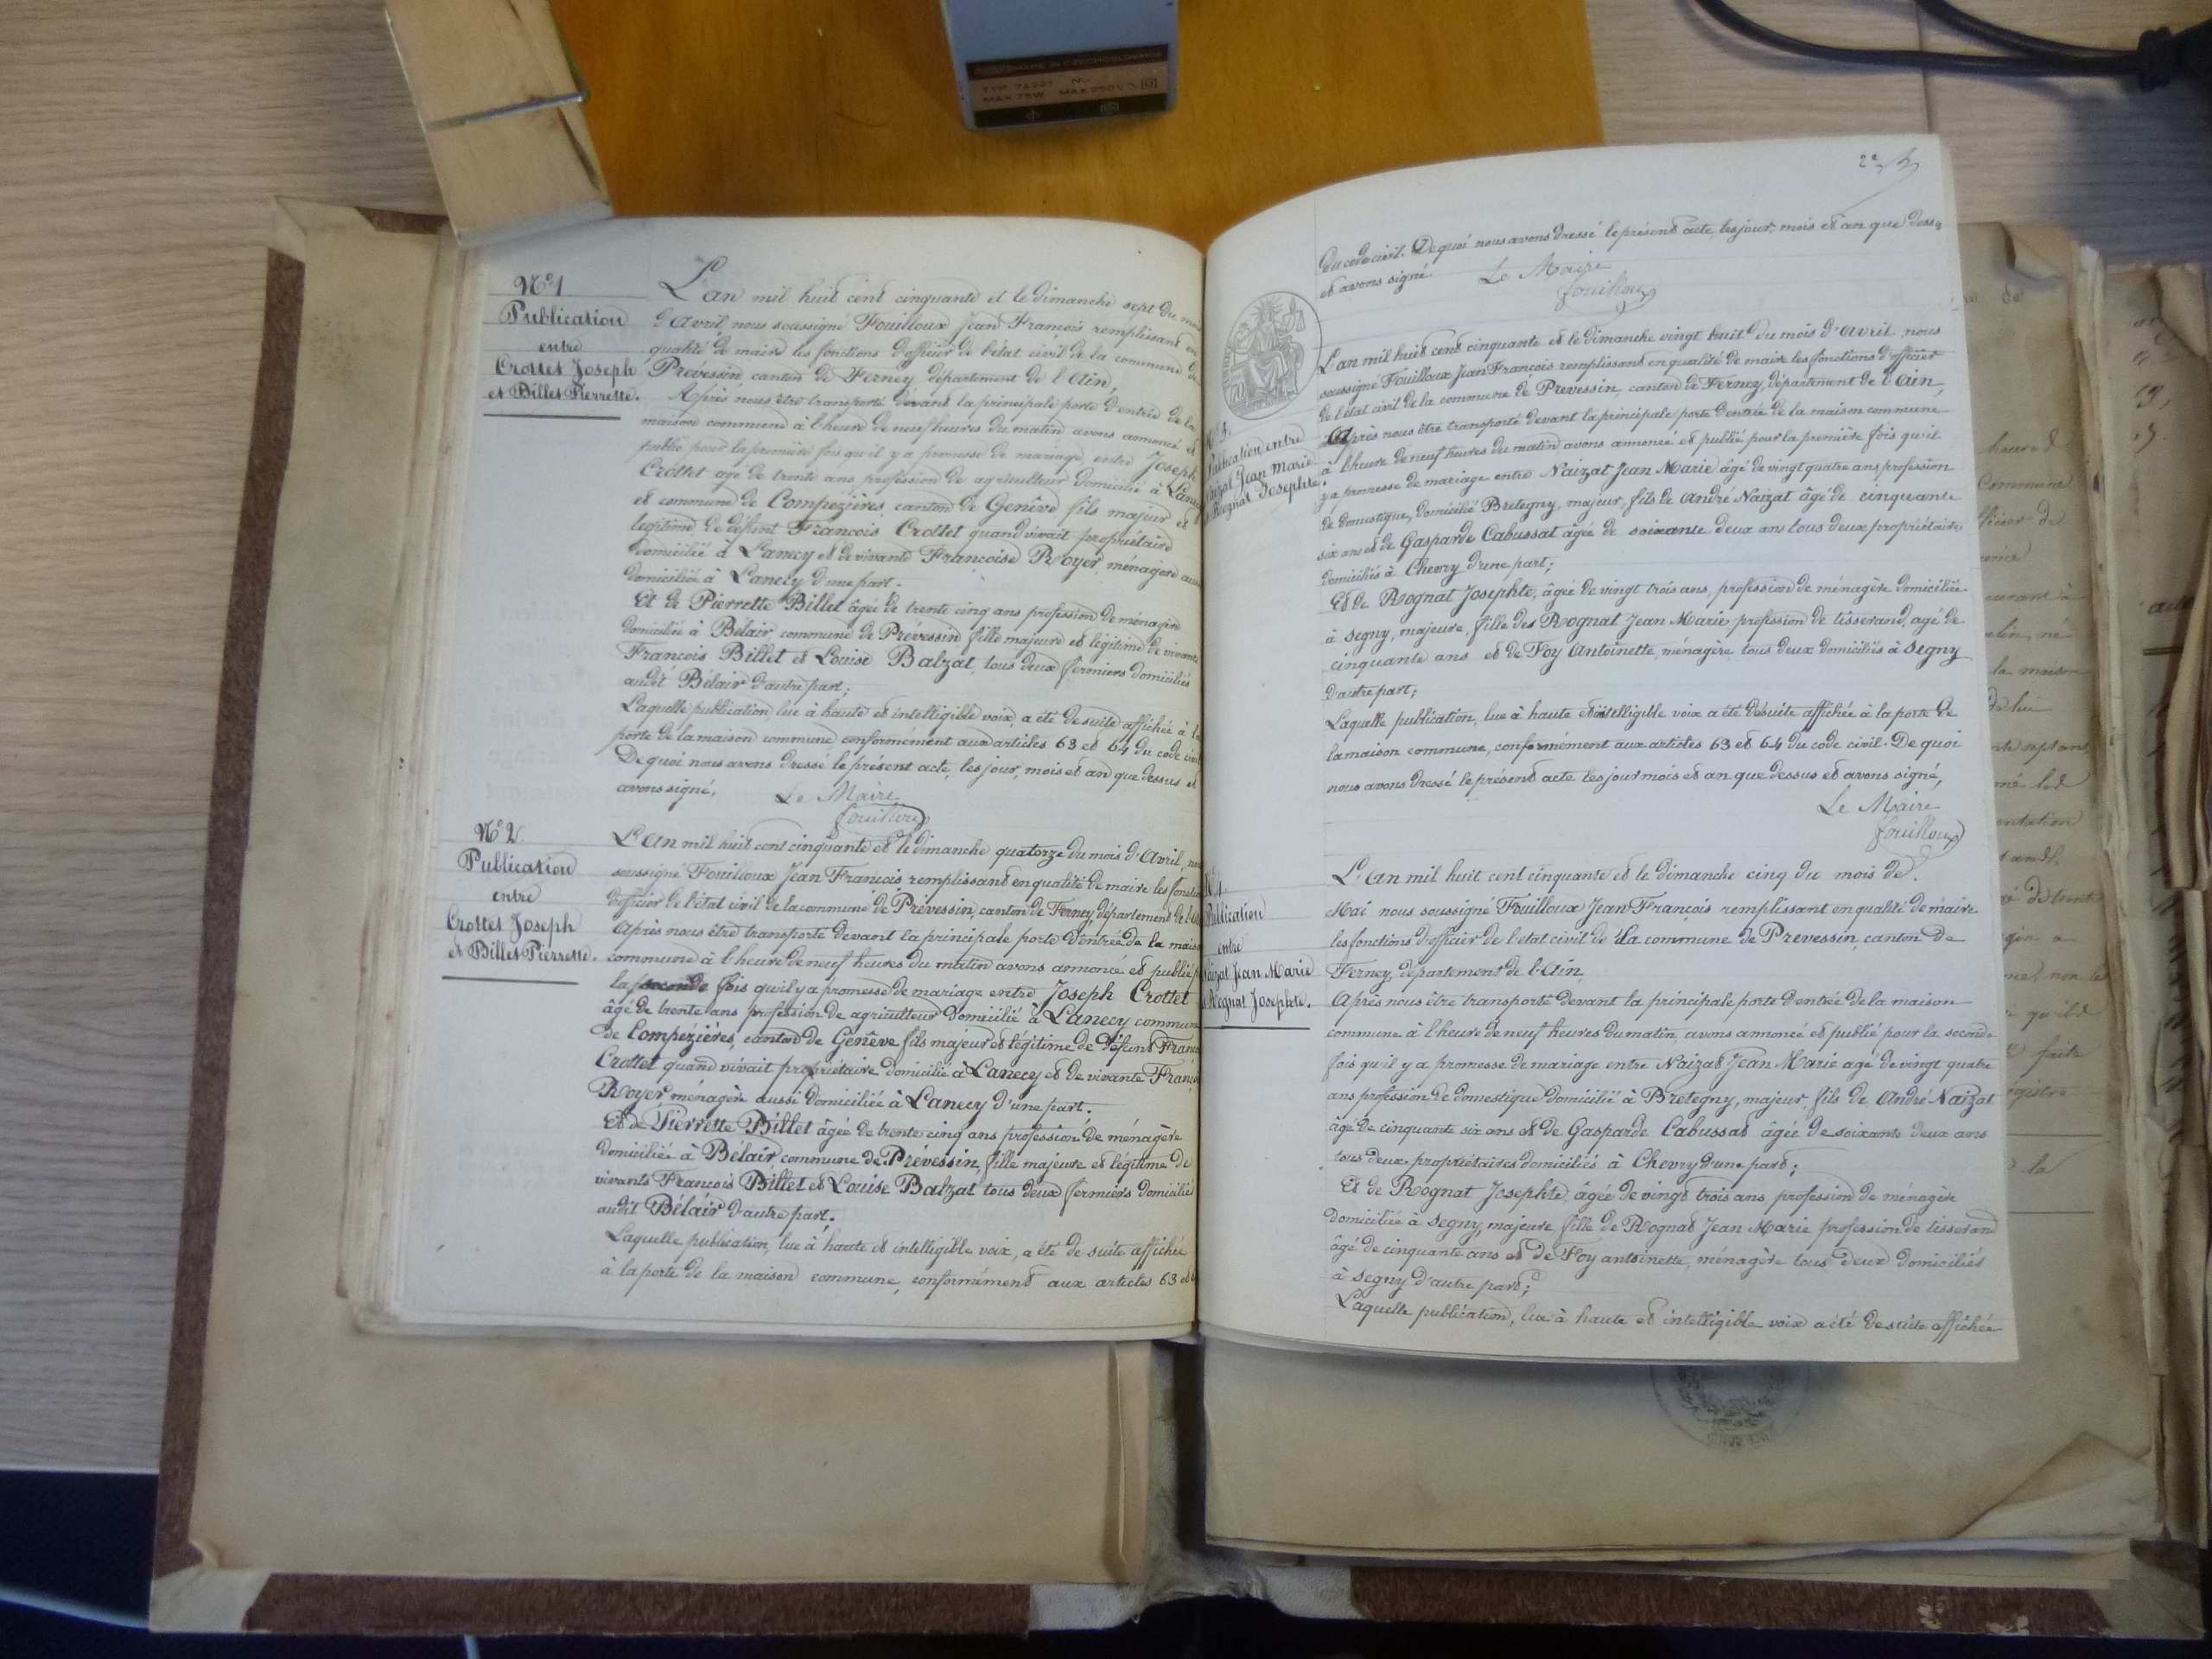 MADE IN CZECHOSLOVAKIA
MAX 75W MAX 250V
N°1
Publication
entre
Crottet Joseph
et Billet Pierrette.
L'an mil huit cent cinquante et le dimanche sept du
d'Avril, nous soussigné Fouilloux Jean François remplissant en
qualité de maire les fonctions d'officier de l'état civil de la commune de
Prevessin, canton de Ferney, département de l'Ain,
Après nous être transporté devant la principale porte d'entrée de la
maison commune à l'heure de neuf heures du matin avons annoncé et
publié pour la première fois qu'il y a promesse de mariage entre Joseph
Crottet age de trente ans profession de agriculteur domicilié à
et commune de Compezières, canton de Genève fils majeur et
legitime de défunt François Crottet quand vivait propriétaire
domicilié à Lanecy et de vivante Françoise Royer ménagère
domiciliée à Lanecy d'une part.
Et de Pierrette Billet âgée de trente cinq ans profession de ménagère
domiciliée à Bélair commune de Prévessin fille majeure et légitime de vivants
François Billet et Louise Balzat, tous deux fermiers domiciliés
audit Bélair d'autre part;
Laquelle publication, lue à haute et intelligible voix, a été de suite affichée à la
porte de la maison commune conformément aux articles 63 et 64 du code
De quoi nous avons dressé le présent acte, les jour, mois et an que dessus et
avons signé,
Le Maire
Fouilloux
N°2
Publication
entre
Crottet Joseph
et Billet Pierrette.
L'An mil huit cent cinquante et le dimanche quatorze du mois d'Avril
soussigné Fouilloux Jean François remplissant en qualité de maire les
d'officier de l'état civil de la commune de Prévessin, canton de Ferney, département de
Après nous être transporté devant la principale porte d'entrée de la
commune à l'heure de neuf heures du matin avons annoncé et publié
la seconde fois qu'il y a promesse de mariage entre Joseph Crottet
âgé de trente ans profession de agriculteur domicilié à Lanecy commune
de Compézières, canton de Genève fils majeur et légitime de défunt
Crottet quand vivait propriétaire domicilié à Lanecy et de vivante
Royer ménagère aussi domiciliée à Lanecy d'une part.
Et de Pierrette Billet âgée de trente cinq ans profession de ménagère
domiciliée à Bélair commune de Prévessin, fille majeure et légitime de
vivants François Billet et Louise Balzat tous deux fermiers domiciliés
audit Bélair d'autre part.
Laquelle publication, lue à haute et intelligible voix, a été de suite affichée
à la porte de la maison commune, conformément aux articles 63 et
2e
du code civil. De quoi nous avons dressé le présent acte, les jour, mois et an que dessus
et avons signé.
Le Maire
Fouilloux
Publication entre
Naizat Jean Marie
Rognat Josephte.
L'an mil huit cent cinquante et le dimanche vingt huit du mois d'avril, nous
soussigné Fouilloux Jean François remplissant en qualité de maire les fonctions d'officier
de l'état civil de la commune de Prevessin, canton de Ferney, département de l'Ain,
Après nous être transporté devant la principale porte d'entrée de la maison commune
à l'heure de neuf heures du matin avons annoncé et publié pour la première fois qu'il
y a promesse de mariage entre Naizat Jean Marie âgé de vingt quatre ans profession
de domestique, domicilié Bretegny, majeur, fils de André Naizat âgé de cinquante
six ans et de Gasparde Cabussat âgée de soixante deux ans tous deux propriétaires
domiciliés à Chevry d'une part;
Et de Rognat Josephte, âgée de vingt trois ans, profession de ménagère domiciliée
à Segny, majeure, fille des Rognat Jean Marie profession de tisserand, agé de
cinquante ans et de Foy Antoinette, ménagère tous deux domiciliés à Segny
d'autre part;
Laquelle publication, lue à haute et intelligible voix a été de suite affichée à la porte de
la maison commune, conformément aux articles 63 et 64 du code civil. De quoi
nous avons dressé le présent acte les jour mois et an que dessus et avons signé,
Le Maire
Fouilloux
Publication
entre
Naizat Jean Marie
Rognat Josephte.
L'an mil huit cent cinquante et le dimanche cinq du mois de
Mai nous soussigné Fouilloux Jean François remplissant en qualité de maire
les fonctions d'officier de l'état civil de la commune de Prevessin, canton de
Ferney, département de l'Ain
Après nous être transporté devant la principale porte d'entrée de la maison
commune à l'heure de neuf heures du matin, avons annoncé et publié pour la seconde
fois qu'il y a promesse de mariage entre Naizat Jean Marie agé de vingt quatre
ans profession de domestique domicilié à Bretegny, majeur, fils de André Naizat
âgé de cinquante six ans et de Gasparde Cabussat âgée de soixante deux ans
tous deux propriétaires domiciliés à Chevry d'une part;
Et de Rognat Josephte, âgée de vingt trois ans profession de ménagère
domiciliée à Segny, majeure, fille de Rognat Jean Marie profession de tisserand
âgé de cinquante ans et de Foy antoinette, ménagère tous deux domiciliés
à Segny d'autre part;
Laquelle publication, lue à haute et intelligible voix a été de suite affichée